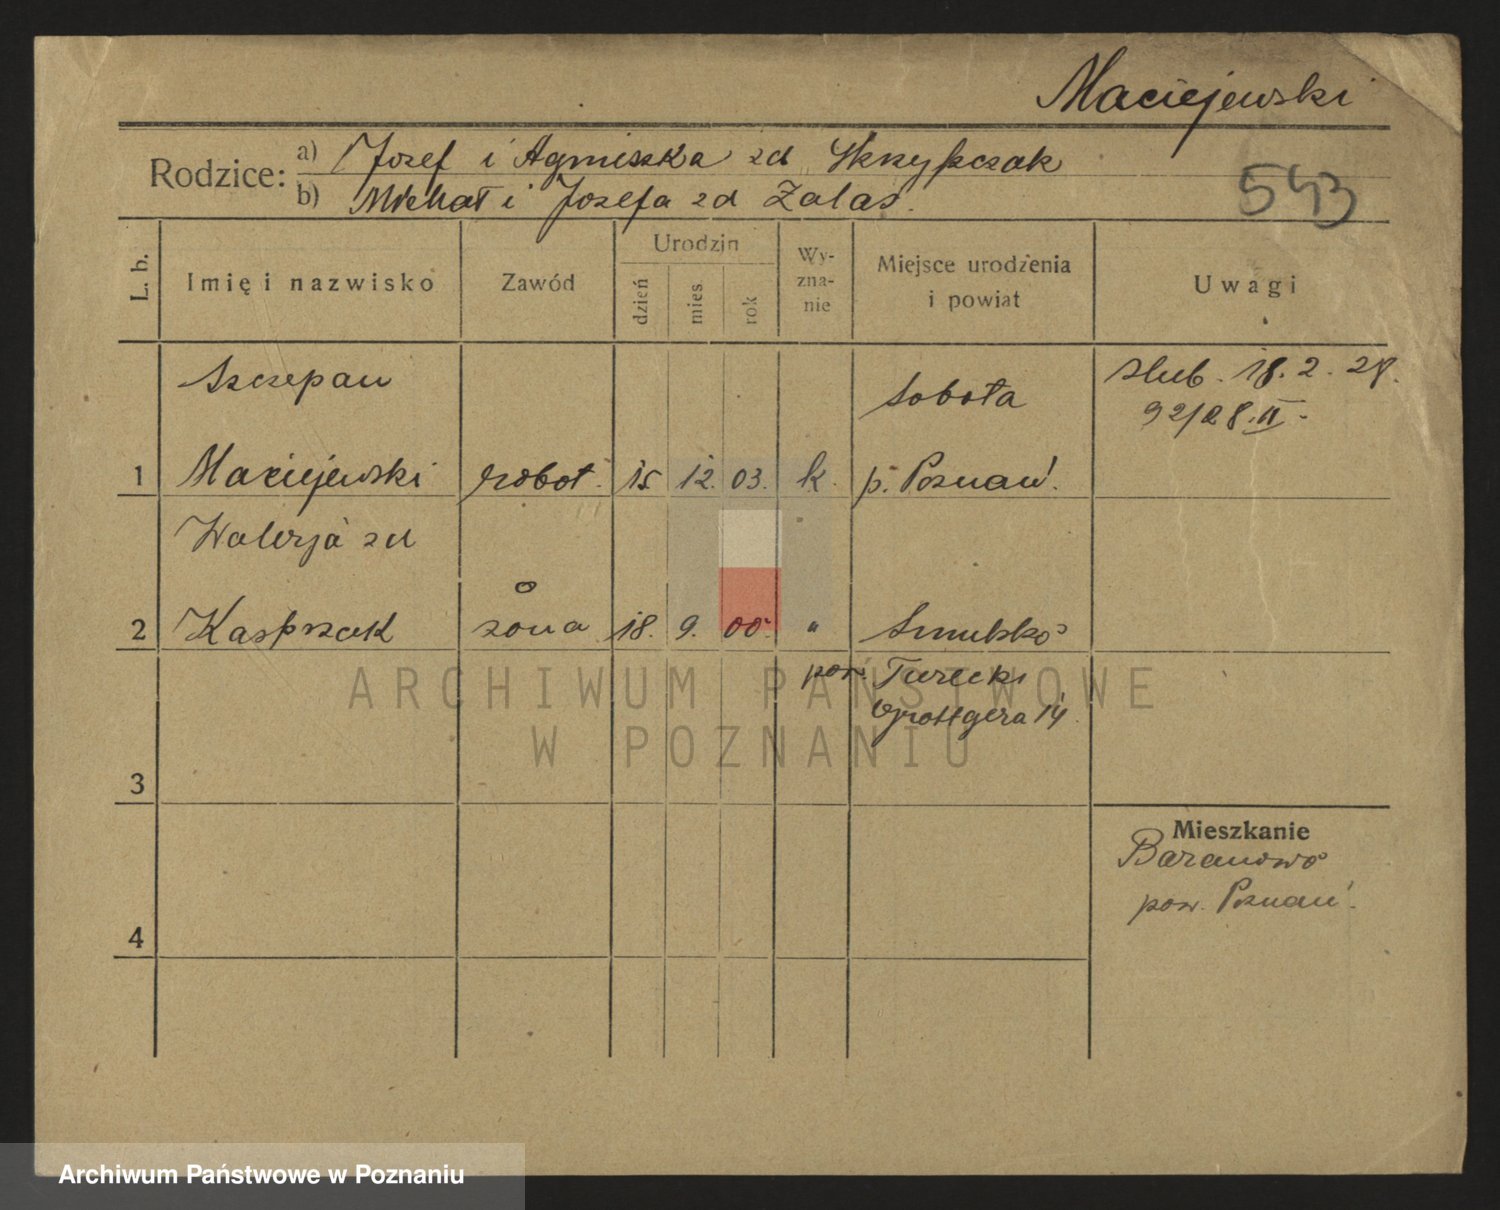 Maciejewski
Rodzice: a) Józef i Agnieszka zd Skrzypczak
b) Michał i Józefa zd Zalas.
543
L. b. Imię i nazwisko Zawód Urodzin dzień mies. rok Wy-zna-nie Miejsce urodzenia i powiat Uwagi
Szczepan Sobota ślub. 18.2.28.
92/28.II.
1 Maciejewski robot. 15 12. 03. k. p. Poznań.
Walerja zd
2 Kasprzak żona 18. 9. 00. " Smulsko
pow. Turecki
Grottgera 14
3
Mieszkanie
Baranowo
pow. Poznań.
4
ARCHIWUM PAŃSTWOWE
W POZNANIU
Archiwum Państwowe w Poznaniu